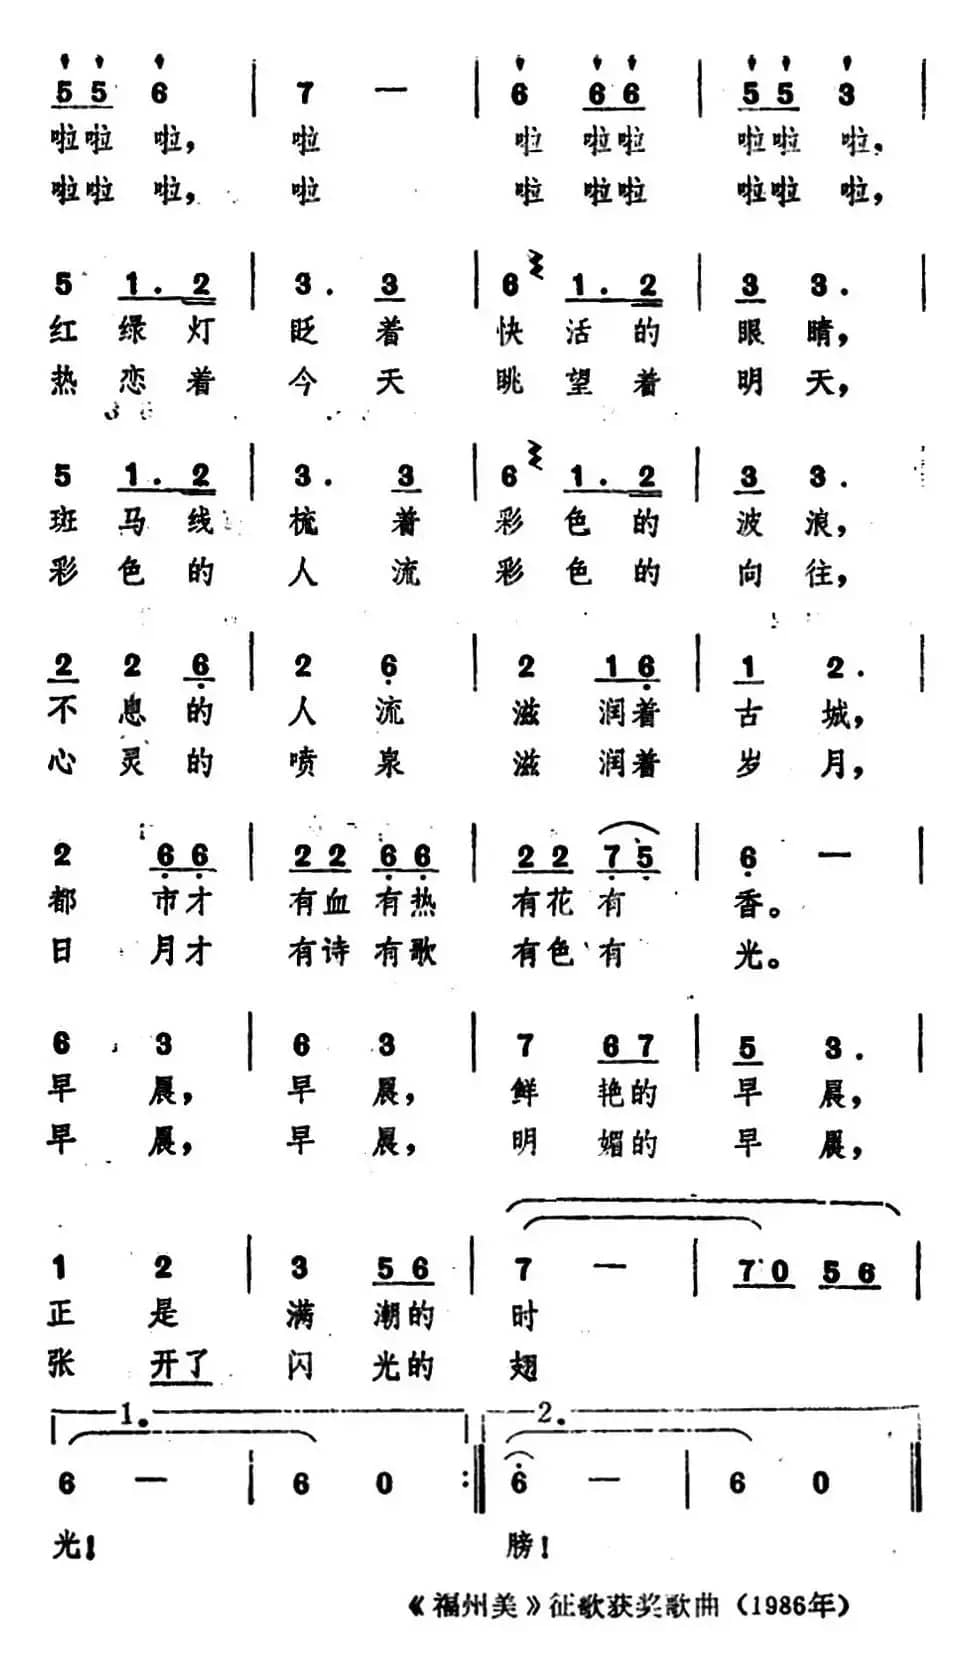 5 5 6 | 7 — | 6 6 6 | 5 5 3 |
啦啦 啦, 啦 啦 啦啦 啦啦 啦,
啦啦 啦, 啦 啦 啦啦 啦啦 啦,
5 1. 2 | 3. 3 | 6 1. 2 | 3 3. |
红 绿 灯 眨 着 快 活 的 眼 睛,
热 恋 着 今 天 眺 望 着 明 天,
5 1. 2 | 3. 3 | 6 1. 2 | 3 3. |
斑 马 线 梳 着 彩 色 的 波 浪,
彩 色 的 人 流 彩 色 的 向 往,
2 2 6 | 2 6 | 2 1 6 | 1 2. |
不 息 的 人 流 滋 润着 古 城,
心 灵 的 喷 泉 滋 润着 岁 月,
2 6 6 | 2 2 6 6 | 2 2 7 5 | 6 — |
都 市才 有血 有热 有花 有 香。
日 月才 有诗 有歌 有色 有 光。
6 3 | 6 3 | 7 6 7 | 5 3. |
早 晨, 早 晨, 鲜 艳的 早 晨,
早 晨, 早 晨, 明 媚的 早 晨,
1 2 | 3 5 6 | 7 — | 7 0 5 6 |
正 是 满 潮的 时
张 开了 闪 光的 翅
1. 2.
6 — | 6 0 :‖ 6 — | 6 0 ‖
光! 膀!
《福州美》征歌获奖歌曲(1986年)